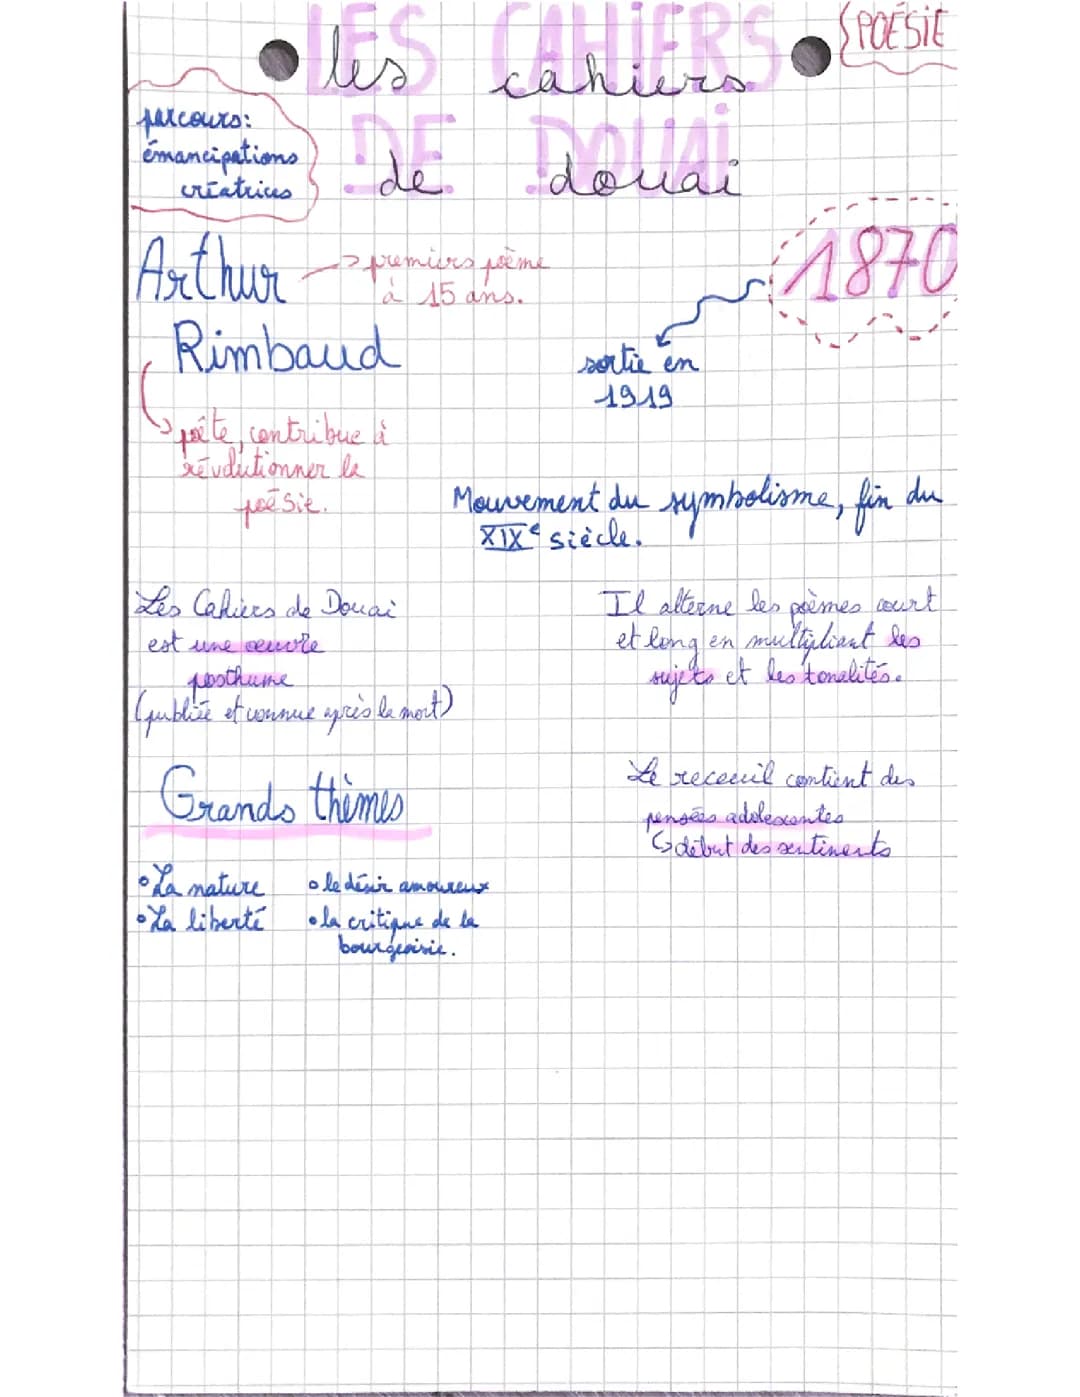 POÉSIE
LES CAHIERS
les cahiers
DE DOUAI
de douai
parcours:
émancipations
créatrices
Arthur
Rimbaud
-> premiers poème
à 15 ans.
1870
sortie en
1919
poète, contribue à
révolutionner la
poésie.
Mouvement du symbolisme, fin du
XIXe siècle.
Les Cahiers de Douai
est une œuvre
posthume
(publiée et connue après la mort)
Il alterne les poèmes court
et long en multipliant les
sujets et les tonalités.
Grands thèmes
• La nature
• La liberté
• le désir amoureux
• la critique de la
bourgeoisie.
Le receuil contient des
pensées adolescentes
↳ début des sentiments